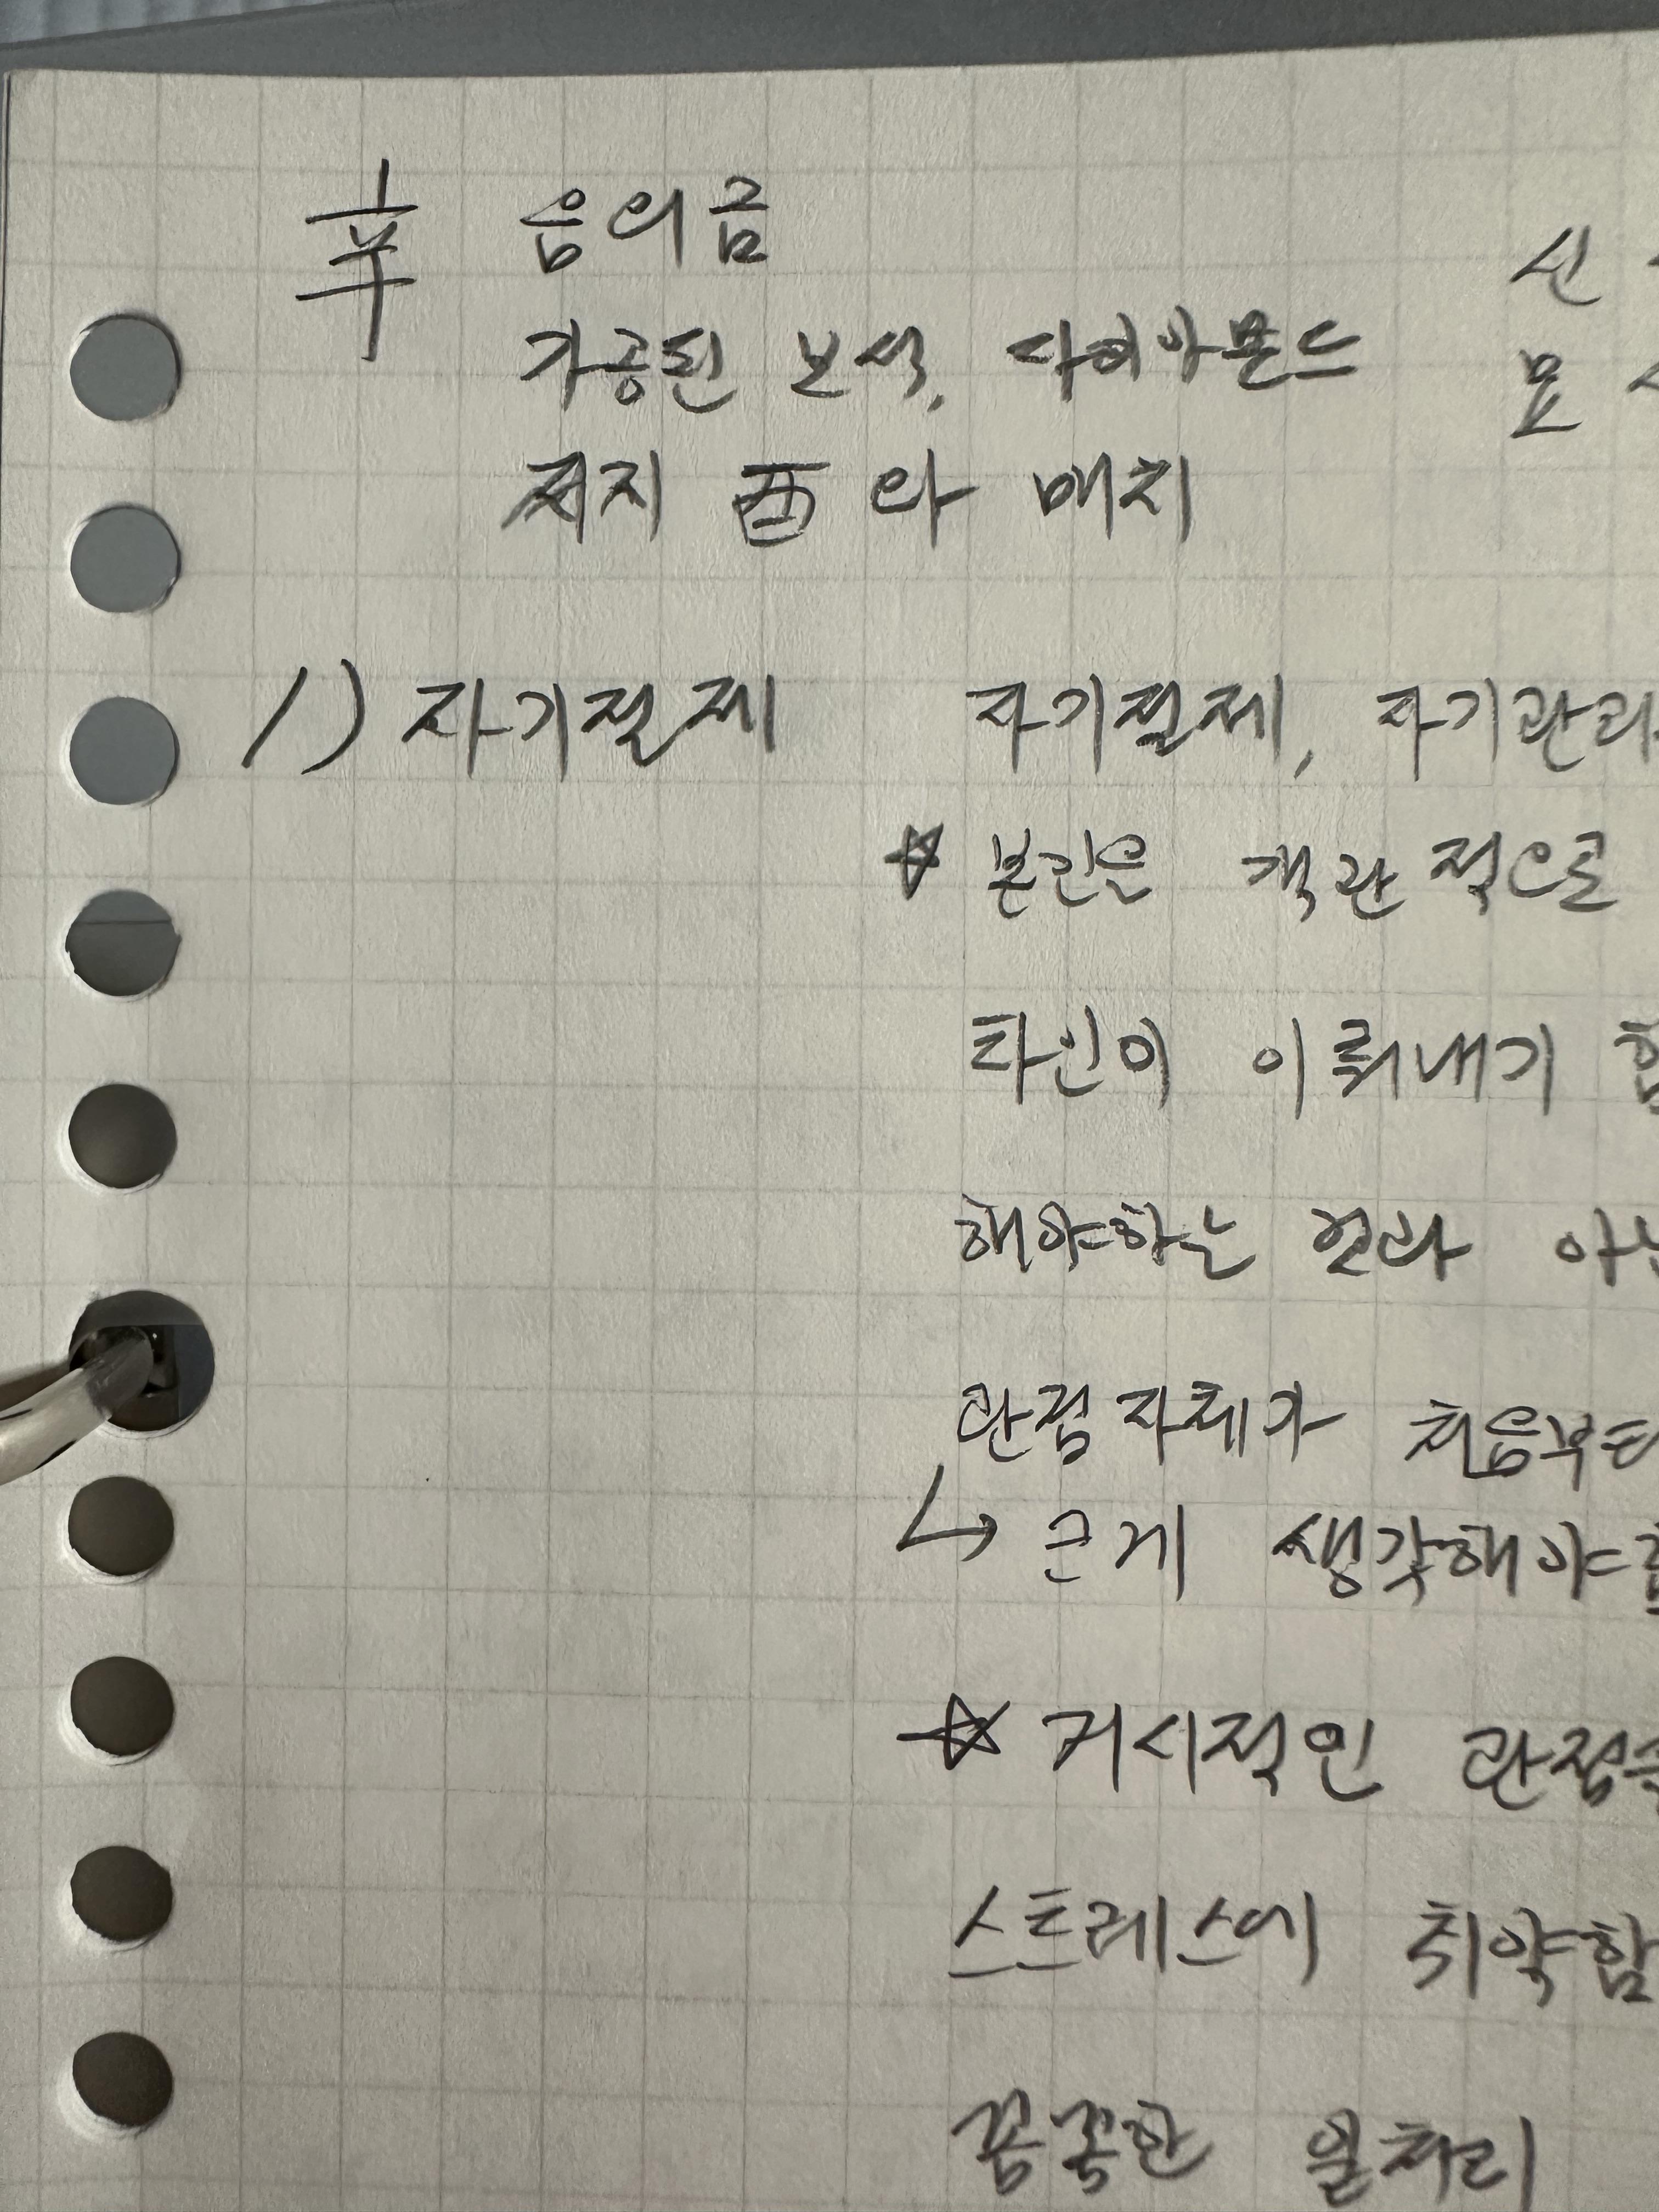 辛 음의금 신
가공된 보석, 다이아몬드 묘
지지 酉와 매치
1) 자기절제 자기절제, 자기관리
☆ 본인은 객관적으로
타인이 이뤄내기 힘
해야하는 결과 아닌
관점자체가 처음부터
↳ 크게 생각해야함
☆ 거시적인 관점을
스트레스에 취약함
꼼꼼한 일처리